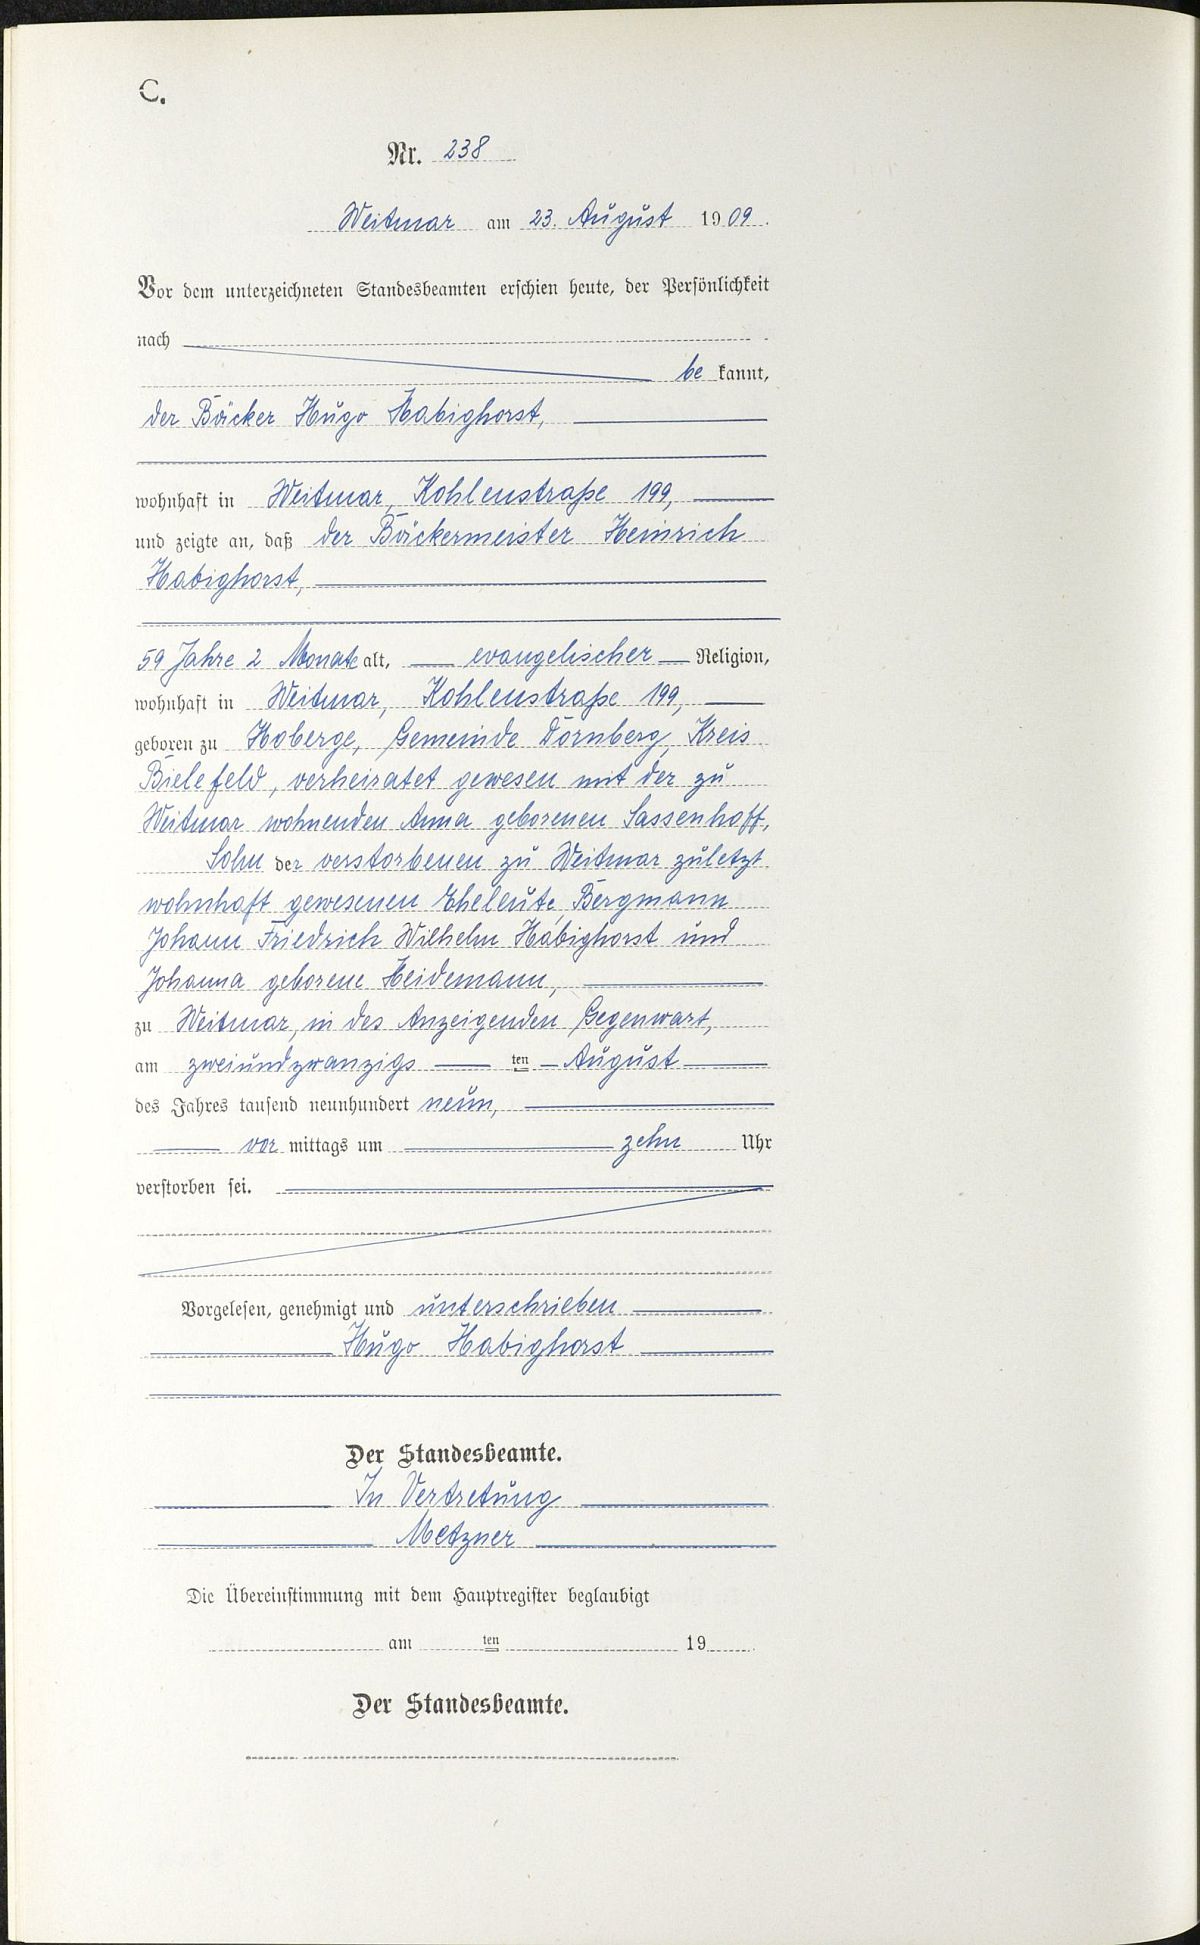 C.
Nr. 238
Weitmar am 23. August 1909.
Vor dem unterzeichneten Standesbeamten erschien heute, der Persönlichkeit
nach
be kannt,
der Bäcker Hugo Habighorst,
wohnhaft in Weitmar, Kohlenstraße 199,
und zeigte an, daß der Bäckermeister Heinrich
Habighorst,
59 Jahre 2 Monate alt, evangelischer Religion,
wohnhaft in Weitmar, Kohlenstraße 199,
geboren zu Hoberge, Gemeinde Dornberg, Kreis
Bielefeld, verheiratet gewesen mit der zu
Weitmar wohnenden Anna geborenen Sassenhoff,
Sohn der verstorbenen zu Weitmar zuletzt
wohnhaft gewesenen Eheleute, Bergmann
Johann Friedrich Wilhelm Habighorst und
Johanna geborene Heidemann,
zu Weitmar, in des Anzeigenden Gegenwart,
am zweiundzwanzigs ten August
des Jahres tausend neunhundert neun,
vor mittags um zehn Uhr
verstorben sei.
Vorgelesen, genehmigt und unterschrieben
Hugo Habighorst
Der Standesbeamte.
In Vertretung
Metzner
Die Übereinstimmung mit dem Hauptregister beglaubigt
am ten 19
Der Standesbeamte.